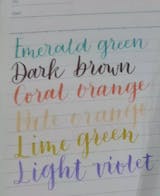 Emerald green
Dark brown
Coral orange
orange
Lime green
Light violet